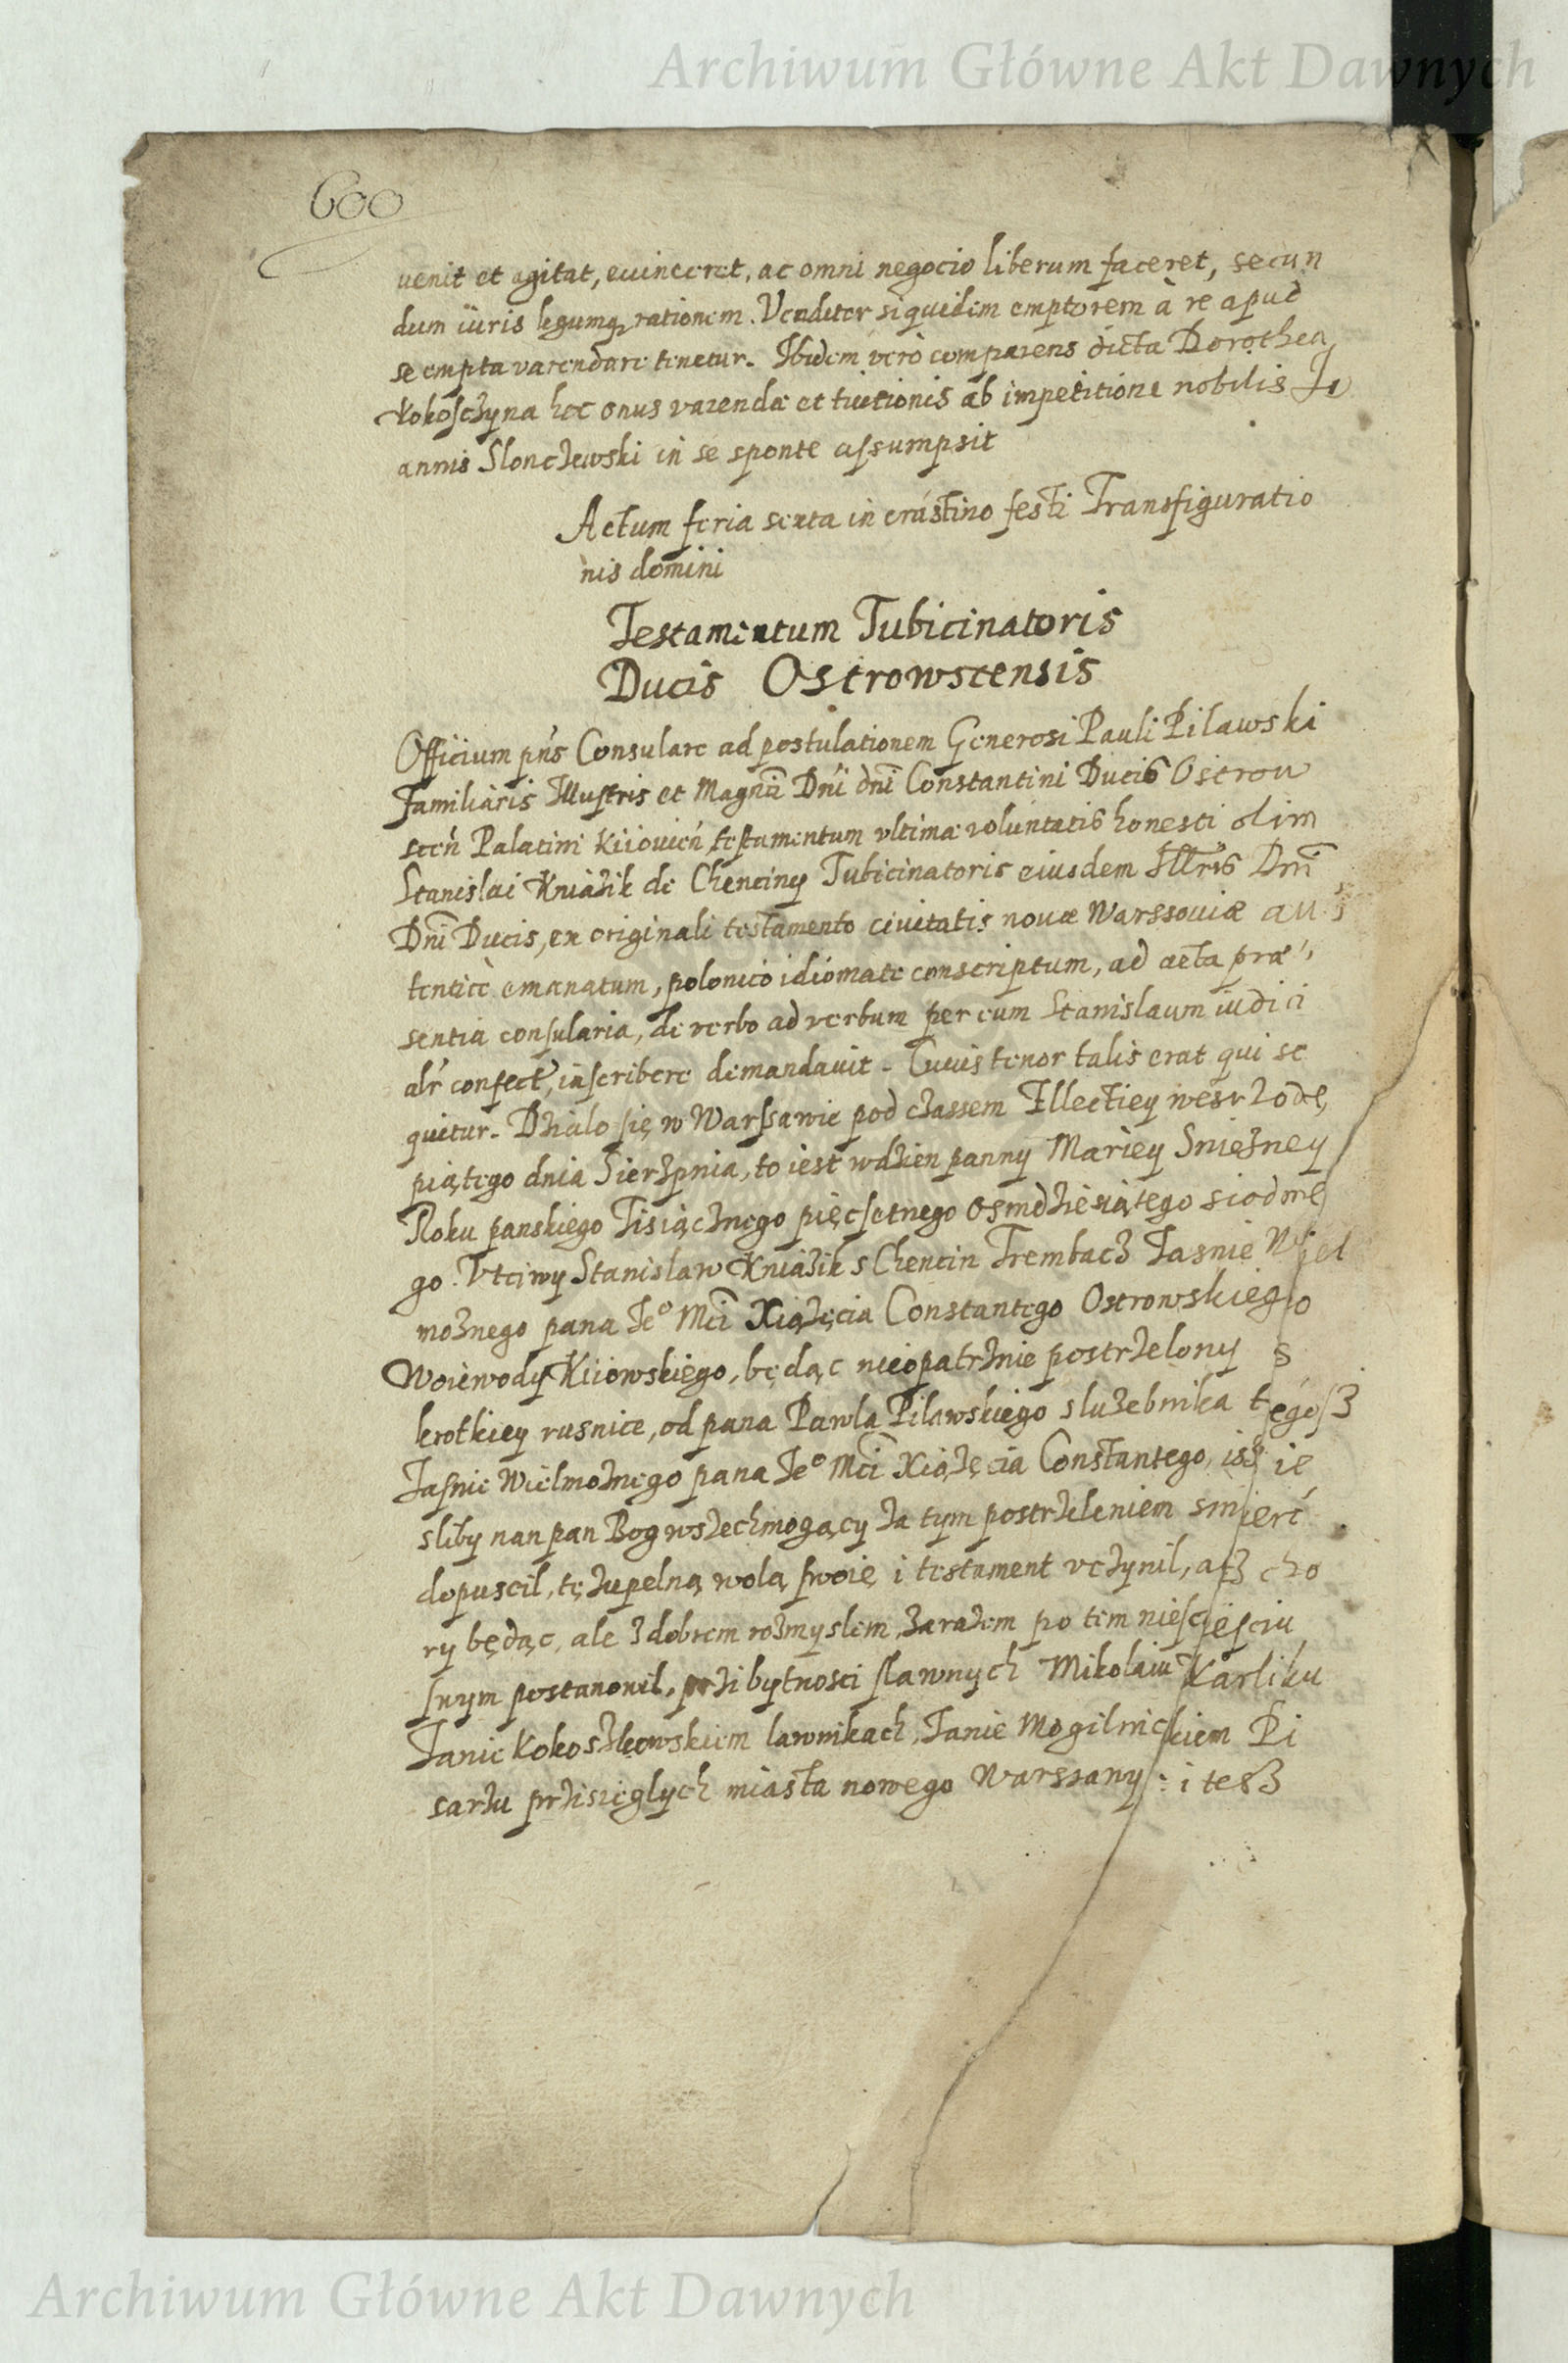 Archiwum Główne Akt Dawnych
600
uenit et agitat, euinceret, ac omni negocio liberum faceret, secun
dum iuris legumq rationem. Venditor siquidem emptorem à re apud
se empta varendare tenetur. Ibidem verò comparens dicta Dorothea
Kokosczyna hoc onus varendæ et tuitionis ab impetitione nobilis Jo
annis Slonczewski in se sponte assumpsit
Actum feria sexta in crastino festi Transfiguratio
nis domini
Testamentum Tubicinatoris
Ducis Ostrowscensis
Officium pñs Consulare ad postulationem Generosi Pauli Pilawski
familiaris Illustris et Magnci Dñi dñi Constantini Ducis Ostrow
sceñ Palatini Kiiovieñ testamentum vltimæ voluntatis honesti olim
Stanislai Kniazik de Chenciny Tubicinatoris eiusdem Illtris Dñi
Dñi Ducis, ex originali testamento ciuitatis nouæ Warssouiæ au
tenticè emanatum, polonico idiomate conscriptum, ad acta præ
sentia consularia, de verbo ad verbum per eum Stanislaum iudici
alr confect, inscribere demandauit. Cuius tenor talis erat qui se
quitur. Dzialo się w Warssawie pod czassem Illectiey wesrzodę
piątego dnia Sierzpnia, to iest wdzien panny Mariey Sniezney
Roku panskiego Tisiącznego pięcsetnego osmdziesiątego siodme
go. Vtciwy Stanislaw Kniazik s Chencin Trembacz Iasnie Wiel
moznego pana Ieº Mci Xiązęcia Constantego Ostrowskiego
Woiewody Kiiowskiego, będąc nieopatrznie postrzelony s
krotkiey rusnice, od pana Pawla Pilawskiego sluzebnika tegosz
Iasnie Wielmoznego pana Ieº Mci Xiązęcia Constantego, isz ie
sliby nan pan Bog wszechmogący za tym postrzeleniem smierć
dopuscil, tę zupelną wolą swoię i testament vczynil, acz cho
ry będąc, ale z dobrem rozmyslem, zarazem po tem niesczęsciu
swym postanowil, przi bytnosci slawnych Mikolaiu Karliku
Ianie Kokoszkowskiem lawnikach, Ianie Mogilnickiem Pi
sarzu przisięglych miasta nowego Warssawy : i tesz
Archiwum Główne Akt Dawnych